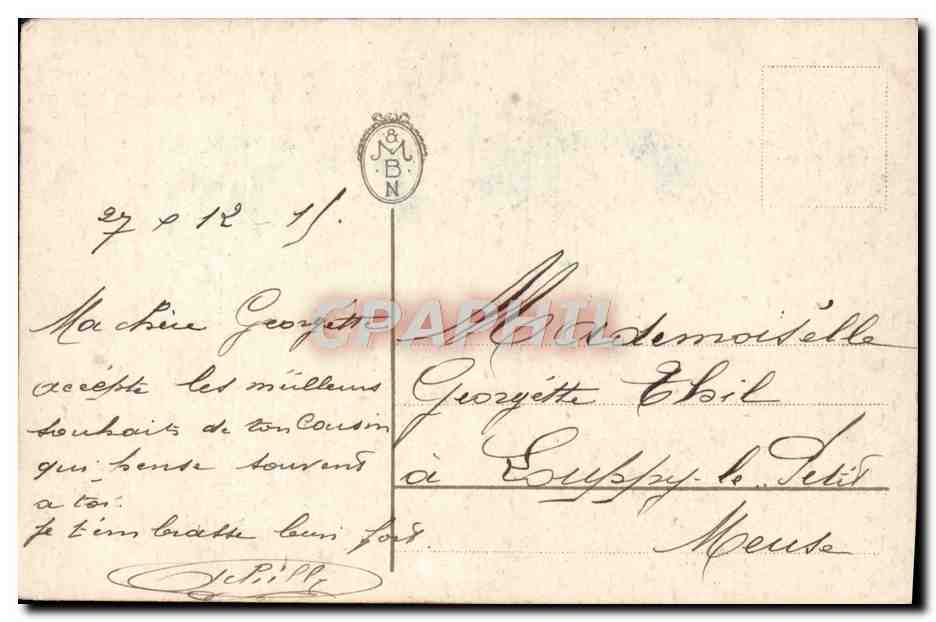 &
M
B
N
27 x 12 - 15.
Ma chère Georgette
accépte les meilleurs
souhaits de ton Cousin
qui pense souvent
a toi.
Je t'embrasse bien fort.
Mademoisélle
Georgétte Thil
à Louppy-le-Petit
Meuse
GRAPHIL